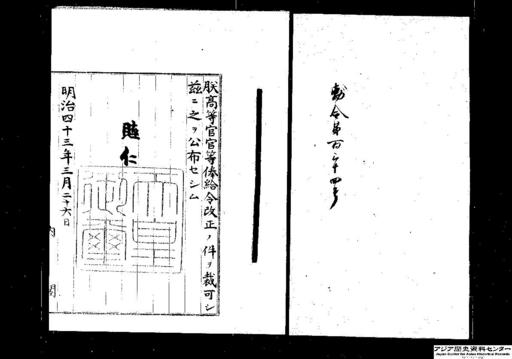 勅令第百三十四号
朕高等官官等俸給令改正ノ件ヲ裁可シ
茲ニ之ヲ公布セシム
睦仁
天皇御璽
明治四十三年三月二十六日
内閣
アジア歴史資料センター
Japan Center for Asian Historical Records